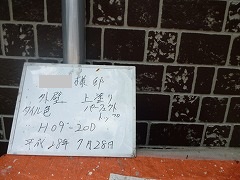 様邸
外壁 上塗り
タイル色 パーフェクト
トップ
H09-20D
平成28年7月28日